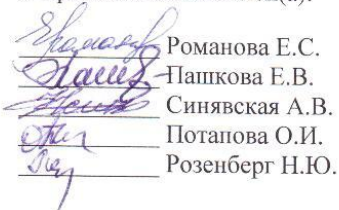 Романова Е.С.
Пашкова Е.В.
Синявская А.В.
Потапова О.И.
Розенберг Н.Ю.